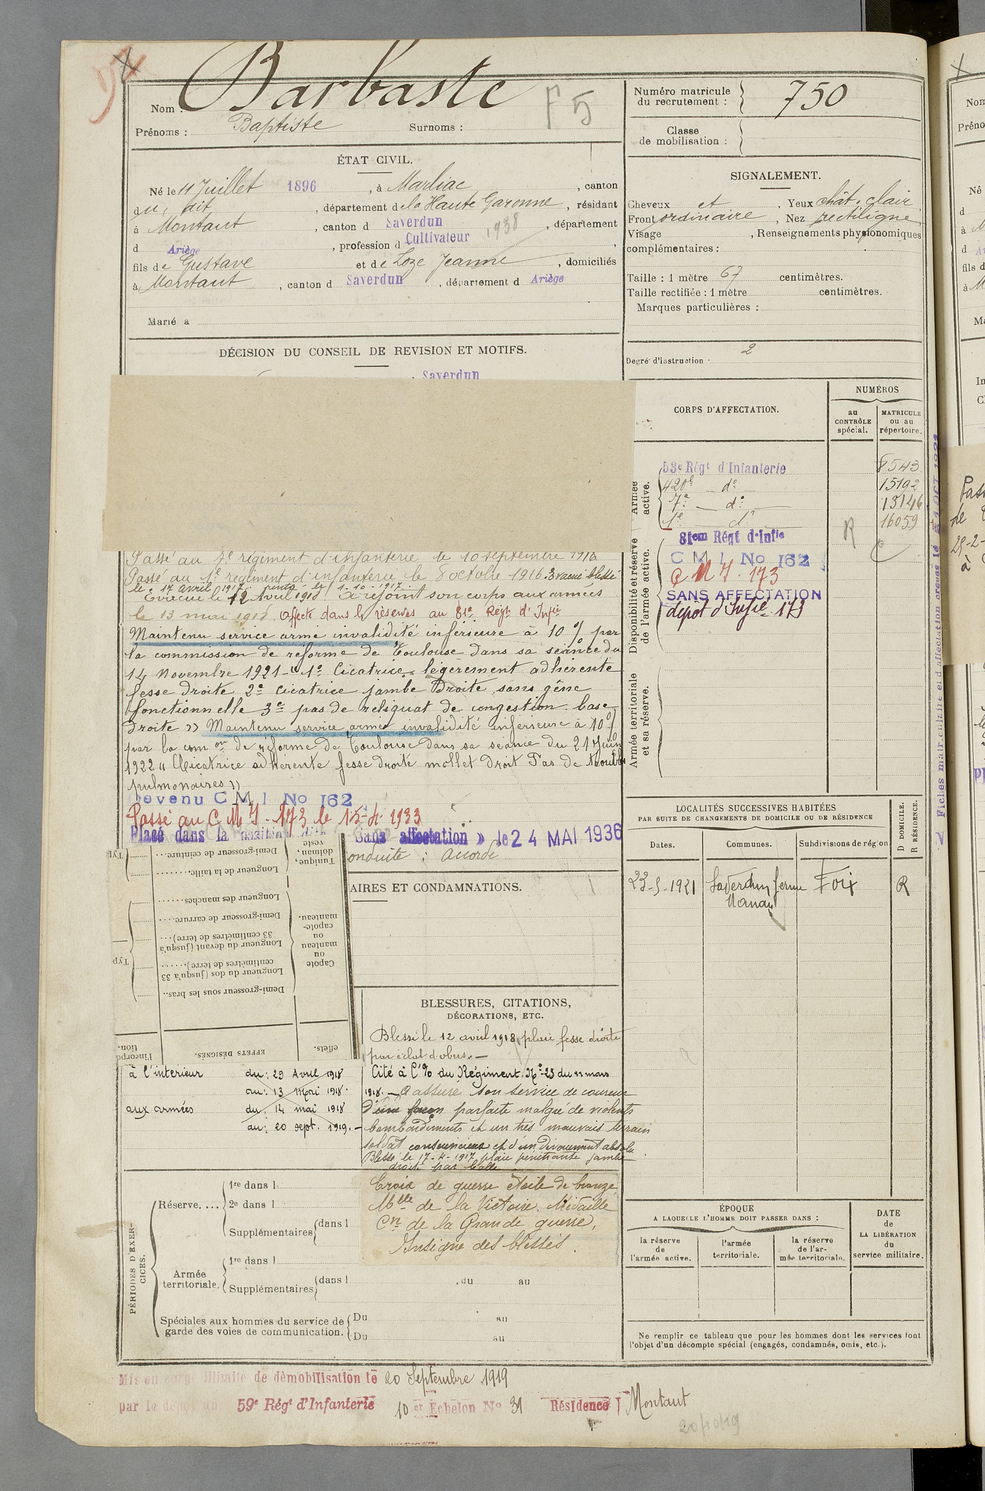 Nom : Barbaste
F 5
Prénoms : Baptiste Surnoms :
Numéro matricule
du recrutement : 750
Classe
de mobilisation :
ÉTAT CIVIL.
Né le 11 Juillet 1896, à Marliac, canton
du dit, département de la Haute Garonne, résidant
à Montaut, canton d Saverdun 1938, département
d Ariège, profession d Cultivateur
fils de Gustave et de Loze Jeanne, domiciliés
à Montaut, canton d Saverdun, département d Ariège
Marié à
SIGNALEMENT.
Cheveux et Yeux chât. clair
Front ordinaire, Nez rectiligne
Visage , Renseignements physionomiques
complémentaires :
Taille : 1 mètre 67 centimètres.
Taille rectifiée : 1 mètre centimètres.
Marques particulières :
Degré d'instruction : 2
DÉCISION DU CONSEIL DE REVISION ET MOTIFS.
Saverdun
Passé au 7e régiment d'infanterie le 10 septembre 1916
Passé au 1er régiment d'infanterie le 8 octobre 1916. Evacué blessé
le 17 avril 1917 rentré le 1-10-1917
Evacué le 12 Avril 1918 a rejoint son corps aux armées
le 13 mai 1918 Affecté dans les réserves au 81e Régt d'Infie
Maintenu service armé invalidité inférieure à 10 % par
la commission de réforme de Toulouse dans sa séance du
14 Novembre 1921 "1° Cicatrice légèrement adhérente
fesse droite 2° Cicatrice jambe Droite sans gêne
fonctionnelle 3° pas de reliquat de congestion base
droite » Maintenu service armé invalidité inférieure à 10 %
par la comon de réforme de Toulouse dans sa séance du 21 Juin
1922 " Cicatrice adhérente fesse droite mollet droit Pas de
pulmonaires »
Devenu C M I No 162
Passé au C M I - 173 le 15-4-1933
Placé dans la « Sans affectation » le 24 MAI 1936
onduite : accordé
CORPS D'AFFECTATION.
NUMÉROS
au
CONTRÔLE
spécial.
MATRICULE
ou au
répertoire.
Armée
active.
53e Régt d'Infanterie 8543
420e - do 15192
7e - do 13146
1e d° 16059
Disponibilité et réserve
de l'armée active.
81em Régt d'Infie
C M I No 162
C M I. 173
SANS AFFECTATION
dépôt d'Infie 173
R
Armée territoriale
et sa réserve.
LOCALITÉS SUCCESSIVES HABITÉES
PAR SUITE DE CHANGEMENTS DE DOMICILE OU DE RÉSIDENCE
Dates. Communes. Subdivisions de région
D DOMICILE.
R RÉSIDENCE.
23-5-1921 Saverdun ferme Foix R
AIRES ET CONDAMNATIONS.
Tunique,
dolman,
veste
Demi-grosseur de ceinture...
Longueur de la taille...
Capote-
manteau
ou
manteau
ou
Capote
Longueur des manches...
Demi-grosseur de carrure...
Longueur du devant (jusqu'à
33 centimètres de terre)...
Longueur du dos (jusqu'à 33
centimètres de terre)...
Demi-grosseur sous les bras..
EFFETS DÉSIGNÉS.
effets.
BLESSURES, CITATIONS,
DÉCORATIONS, ETC.
Blessé le 12 avril 1918, plaie fesse droite
par éclat d'obus. —
Cité à l'O/ du Régiment No 23 du 11 mars
1918. — A assuré son service de coureur
d'une façon parfaite malgré de violents
bombardements et un très mauvais terrain
soldat consciencieux et d'un dévouement absolu.
Blessé le 17-4-1917 plaie pénétrante jambe
droite par balle
Croix de guerre étoile de bronze
Mlle de la Victoire. Médaille
Cve de la Grande guerre,
Insigne des blessés.
à l'intérieur du 29 Avril 1918
au 13 Mai 1918.
aux armées du 14 mai 1918
au 20 sept. 1919.
PÉRIODES D'EXERCICES.
Réserve....
1re dans l
2e dans l
Supplémentaires dans l
Armée
territoriale.
1re dans l
Supplémentaires dans l , du au
Spéciales aux hommes du service de
garde des voies de communication.
Du au
Du au
ÉPOQUE
A LAQUELLE L'HOMME DOIT PASSER DANS :
la réserve
de
l'armée active.
l'armée
territoriale.
la réserve
de l'ar-
mée territoriale.
DATE
DE LA
LIBÉRATION
du
service militaire.
Ne remplir ce tableau que pour les hommes dont les services font
l'objet d'un décompte spécial (engagés, condamnés, omis, etc.).
Mis en congé illimité de démobilisation le 20 Septembre 1919
par le dépôt du 59e Régt d'Infanterie 10 et Echelon No 31 Résidence Montaut
20/10/19